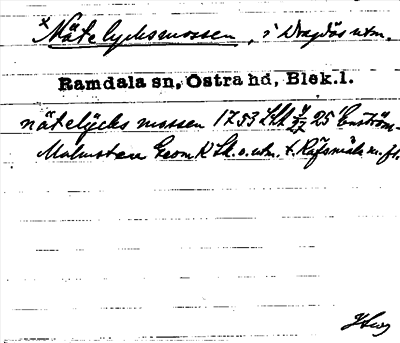 x Nätelycksmossen, i Dragsös utm.
Ramdala sn, Östra hd, Blek. l.
nätelÿcks mossen 1753 LSA 25 Enström-
Malmsten Geom K Sk. o. utm. t. Räfsmåla m. fl.